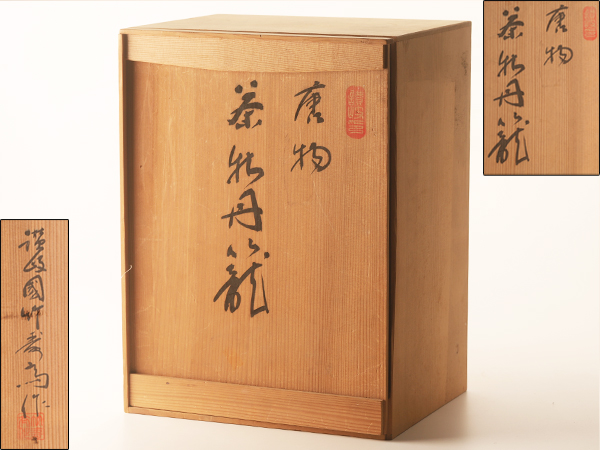 唐物
茶牡丹籠
唐物
茶牡丹籠
讃岐國竹斎高作